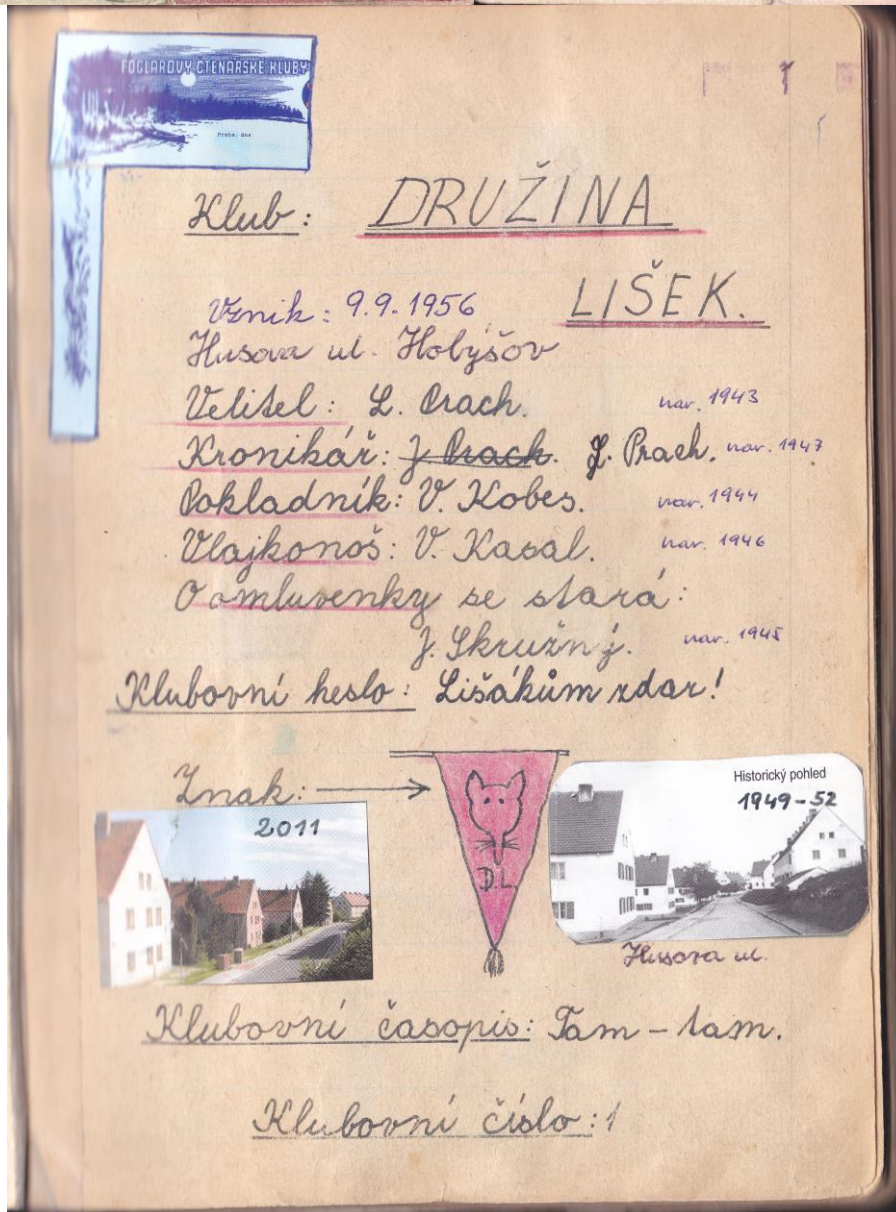 FOGLAROVY ČTENÁŘSKÉ KLUBY
Praha, dne
1
Klub: DRUŽINA
LIŠEK.
Vznik: 9.9.1956
Husova ul. Hobýšov
Velitel: L. Prach. nar. 1943
Kronikář: J Prach. J. Prach. nar. 1947
Pokladník: V. Kobes. nar. 1944
Vlajkonoš: V. Kasal. nar. 1946
O omluvenky se stará:
J. Skružný. nar. 1945
Klubovní heslo: Lišákům zdar!
Znak:
D.L.
2011
Historický pohled
1949-52
Husova ul.
Klubovní časopis: Tam-tam.
Klubovní číslo: 1